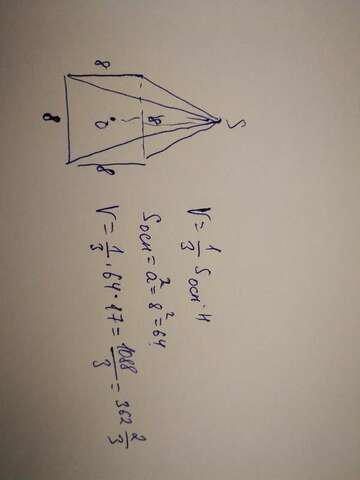 S
8
8
8
O
V = 1/3 Sосн·H
Sосн = a² = 8² = 64
V = 1/3 · 64 · 17 = 1088/3 = 362 2/3